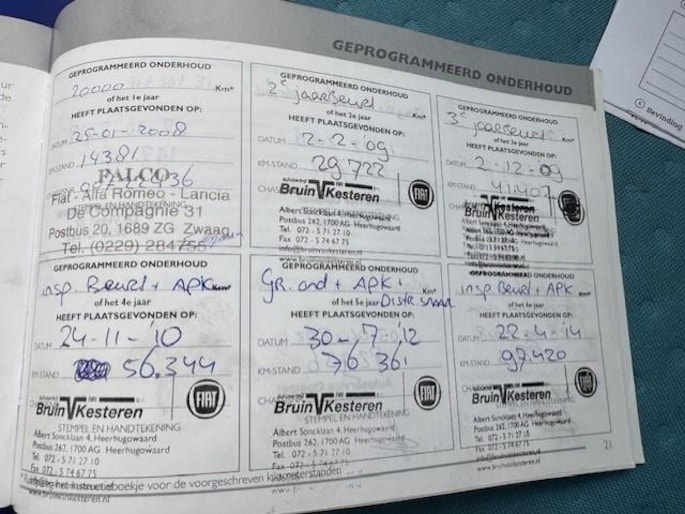 GEPROGRAMMEERD ONDERHOUD
GEPROGRAMMEERD ONDERHOUD
20000 Km*
of het 1e jaar
HEEFT PLAATSGEVONDEN OP:
DATUM 25-01-2008
KM-STAND 14381
FALCO
Fiat - Alfa Romeo - Lancia
De Compagnie 31
Postbus 20, 1689 ZG Zwaag
Tel. (0229) 284755
GEPROGRAMMEERD ONDERHOUD
2e jaarBeurt Km*
of het 2e jaar
HEEFT PLAATSGEVONDEN OP:
DATUM 2-12-09
KM-STAND 29722
Bruin Kesteren
FIAT
Albert Soncklaan 4, Heerhugowaard
Postbus 262, 1700 AG Heerhugowaard
Tel 072 - 5 71 27 10
Fax 072 - 5 74 67 75
info@bruinvankesteren.nl
GEPROGRAMMEERD ONDERHOUD
3e jaarBeurt Km*
of het 3e jaar
HEEFT PLAATSGEVONDEN OP:
DATUM 2-12-09
KM-STAND 41.407
Bruin Kesteren
GEPROGRAMMEERD ONDERHOUD
insp Beurt + APK Km*
of het 4e jaar
HEEFT PLAATSGEVONDEN OP:
DATUM 24-11-'10
KM-STAND 56.344
Bruin Kesteren
FIAT
STEMPEL EN HANDTEKENING
Albert Soncklaan 4, Heerhugowaard
Postbus 262, 1700 AG Heerhugowaard
Tel. 072 - 5 71 27 10
Fax 072 - 5 74 67 75
www.bruinvankesteren.nl
GEPROGRAMMEERD ONDERHOUD
Gr. ond + APK Km*
of het 5e jaar Distr. snaar
HEEFT PLAATSGEVONDEN OP:
DATUM 30-7-'12
KM-STAND 76361
Bruin Kesteren
STEMPEL EN HANDTEKENING
Albert Soncklaan 4, Heerhugowaard
Postbus 262, 1700 AG Heerhugowaard
Tel. 072 - 5 71 27 10
Fax 072 - 5 74 67 75
www.bruinvankesteren.nl
GEPROGRAMMEERD ONDERHOUD
insp Beurt + APK Km*
of het 6e jaar
HEEFT PLAATSGEVONDEN OP:
DATUM 22-4-'14
KM-STAND 97420
Bruin Kesteren
STEMPEL EN HANDTEKENING
Albert Soncklaan 4, Heerhugowaard
Postbus 262, 1700 AG Heerhugowaard
Tel. 072 - 5 71 27 10
Fax 072 - 5 74 67 75
www.bruinvankesteren.nl
het instructieboekje voor de voorgeschreven kilometerstanden
21
Bevinding